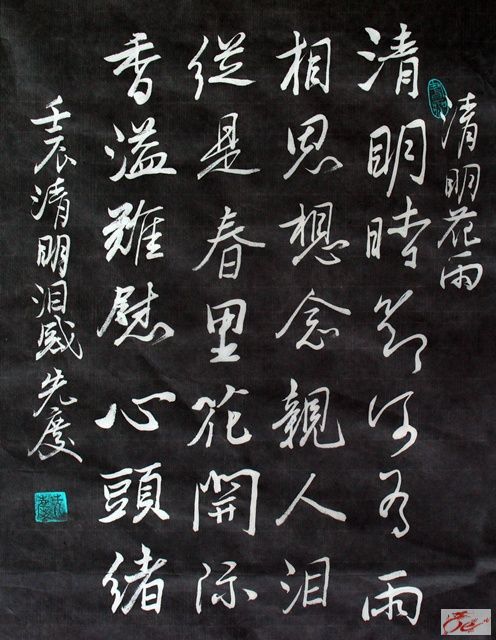 清明花雨
清明時節何為雨
相思想念親人泪
從是春里花開際
香溢難慰心頭緒
壬辰清明泪感先慶